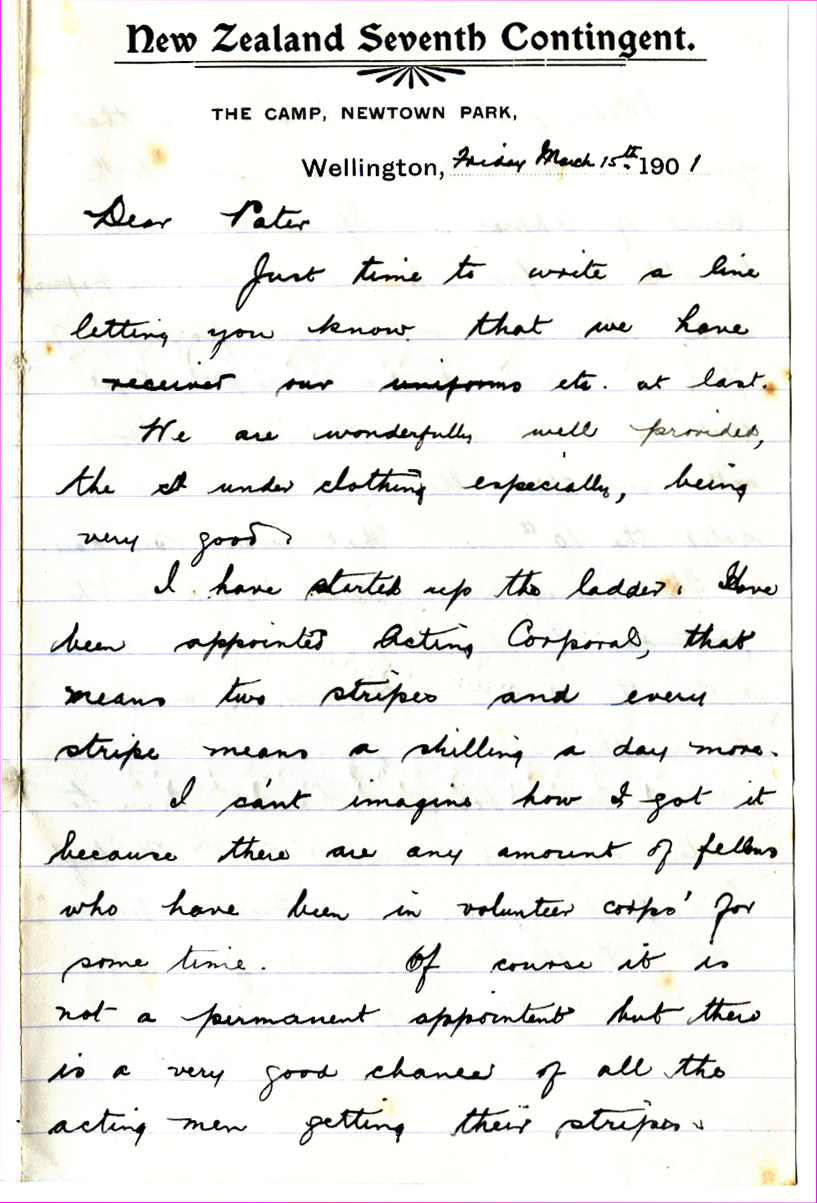 New Zealand Seventh Contingent.
THE CAMP, NEWTOWN PARK,
Wellington, Friday March 15th 1901
Dear Pater
Just time to write a line
letting you know that we have
received our uniforms etc. at last.
We are wonderfully well provided,
the under clothing especially, being
very good.
I have started up the ladder. Have
been appointed Acting Corporal, that
means two stripes and every
stripe means a shilling a day more.
I can't imagine how I got it
because there are any amount of fellows
who have been in volunteer corps' for
some time. Of course it is
not a permanent appointent but there
is a very good chance of all the
acting men getting their stripes.